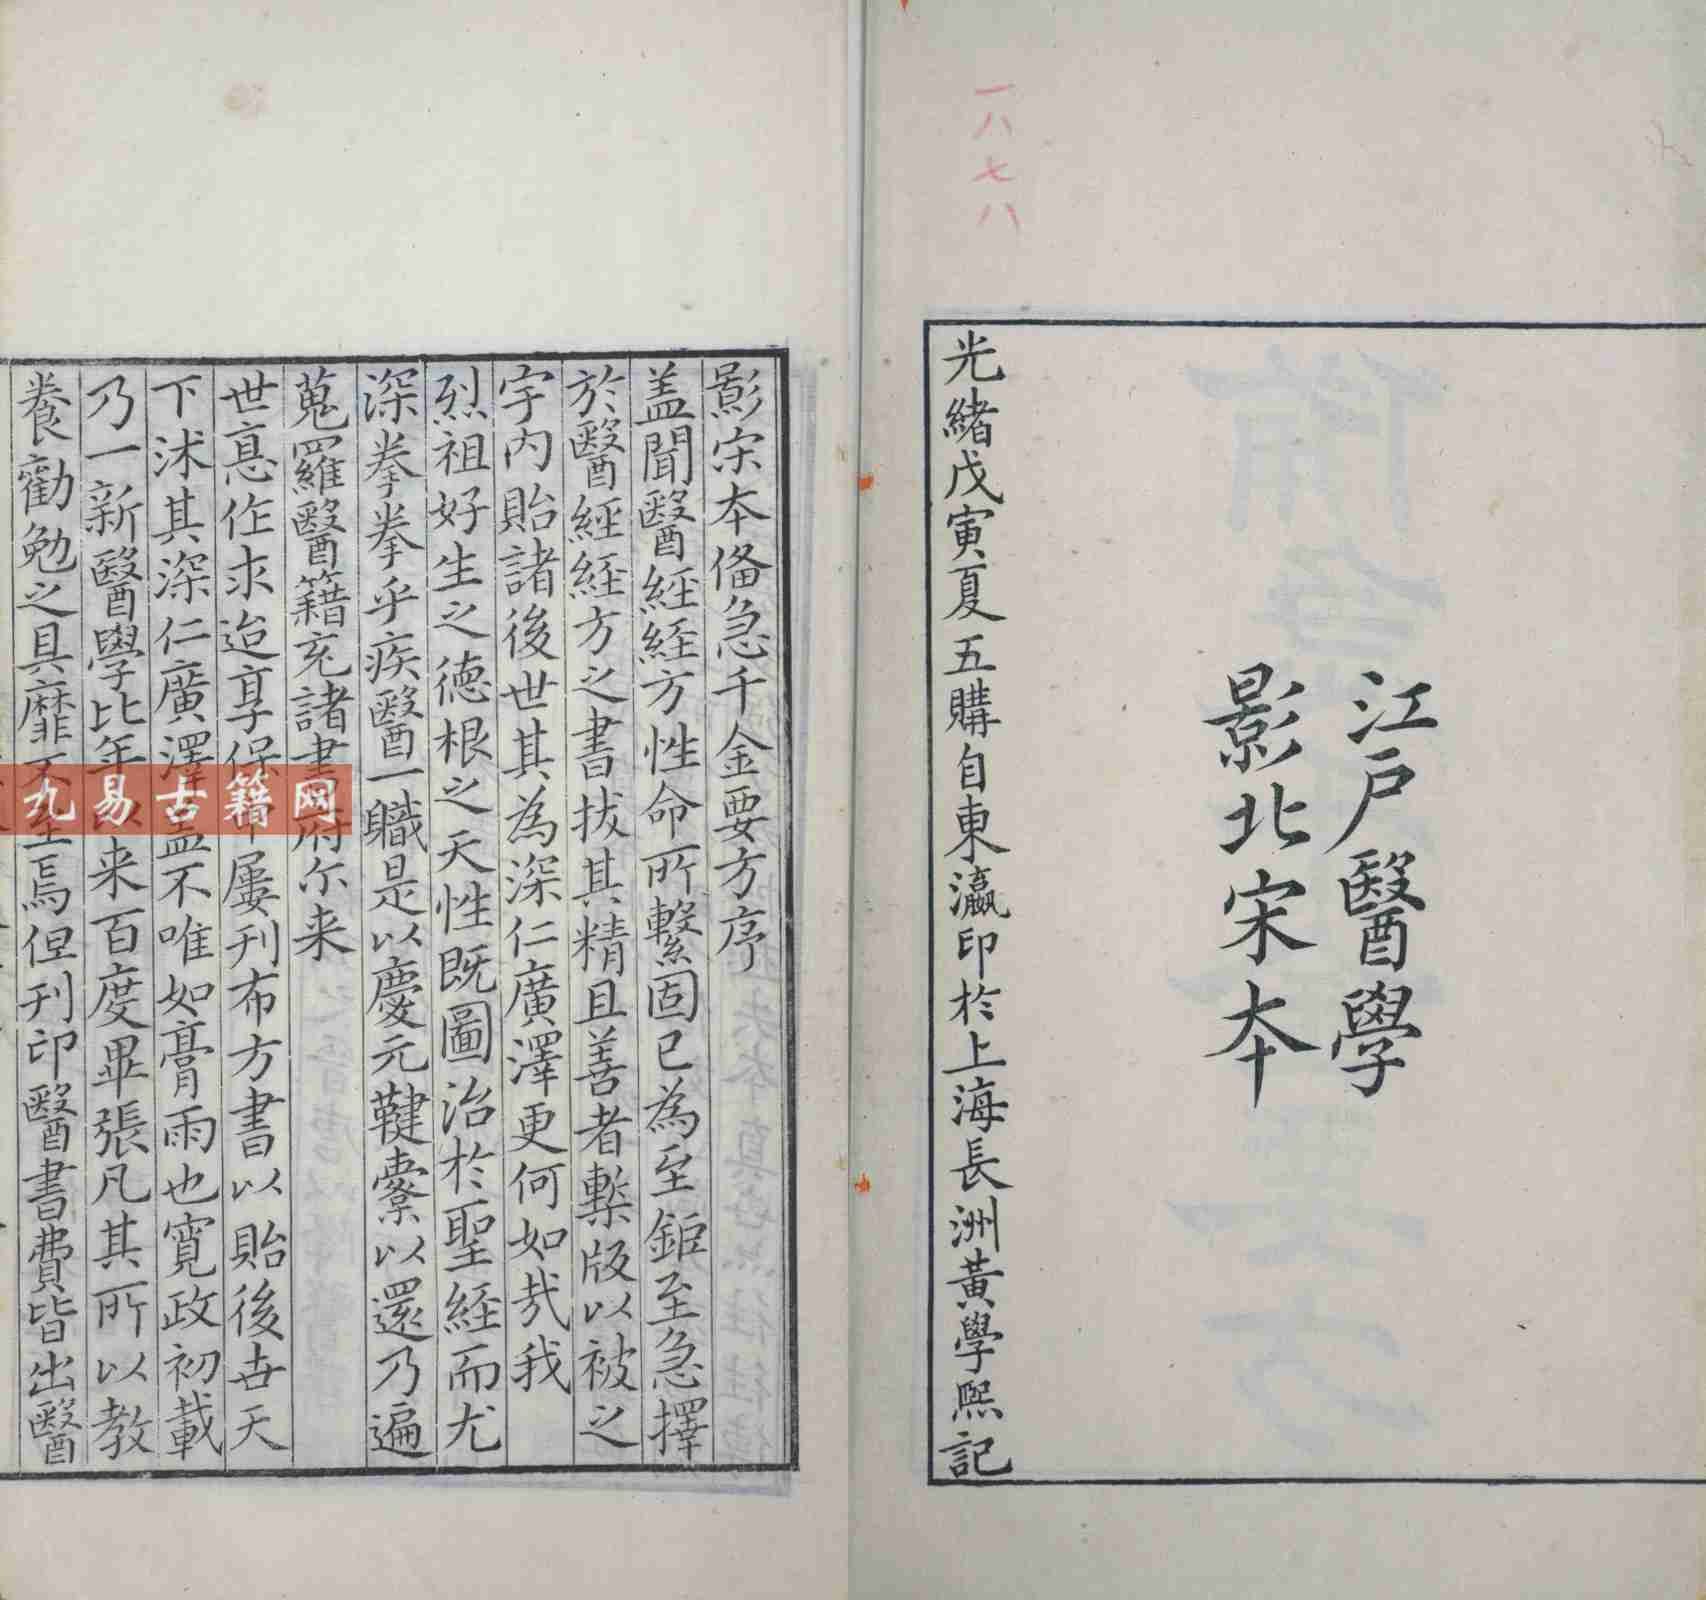 一八七八
江戶醫學
影北宋本
光緒戊寅夏五購自東瀛印於上海長洲黃學熙記
影宋本備急千金要方序
蓋聞醫經經方性命所繫固已為至鉅至急擇
於醫經經方之書拔其精且善者槧版以被之
宇内貽諸後世其為深仁廣澤更何如哉我
烈祖好生之德根之天性既圖治於聖經而尤
深拳拳乎疾醫一職是以慶元鞬櫜以還乃遍
蒐羅醫籍充諸書府尔来
世悳作求迨享保中屢刊布方書以貽後世天
下沭其深仁廣澤蓋不唯如膏雨也寬政初載
乃一新醫學比年以来百度畢張凡其所以教
養勸勉之具靡不至焉但刊印醫書費皆出醫
九易古籍网